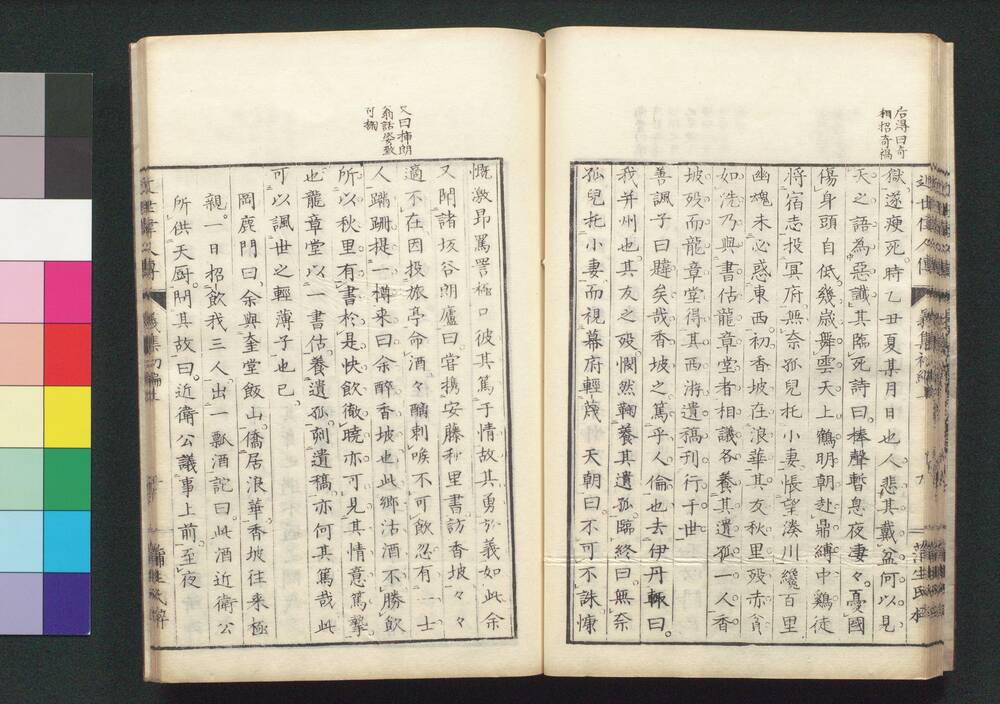 獄遂瘐死。時乙丑夏某月日也。人悲其戴盆何以見
天之語為惡讖其臨死詩曰。棒聲暫息夜凄々。憂國
傷身頭自低。幾歳舞雲天上鶴。明朝赴鼎縛中鷄。徒
將宿志投冥府。無奈孤兒托小妻。悵望湊川纔百里
幽魂未必惑東西。初香坡在浪華其友秋里歿赤貧
如洗。乃與書估龍章堂者相議各養其遺孤一人香
坡歿而龍章堂得其西游遺稿刊行于世
善諷子曰。難矣哉香坡之篤乎人倫也去伊丹輒曰。
我并州也。其友之歿。憫然鞠養其遺孤。臨終曰。無奈
孤兒托小妻。而視幕府輕蔑 天朝曰不可不誅慷
后淂曰奇
相招奇禍
慨激昂罵詈極口彼其篤于情故其勇於義如此余
又聞諸坂谷朗廬曰。甞携安藤秋里書訪香坡々々
適不在因投旅亭命酒々醨刺喉不可飲忽有一士
人蹣跚提一樽来曰余醉香坡也此鄉沽酒不勝飲
所以秋里有書於是快飲徹曉亦可見其情意篤摯
也。龍章堂以一書估養遺孤。刻遺稿。亦何其篤哉此
可以諷世之輕薄子也已。
岡鹿門曰。余與奎堂飯山。僑居浪華。香坡往来極
親。一日招飲我三人。出一瓢酒詑曰。此酒近衛公
所供天厨。問其故曰。近衛公議事上前。至夜
又曰揷朗
翁話姿致
可掬
蒲生氏本